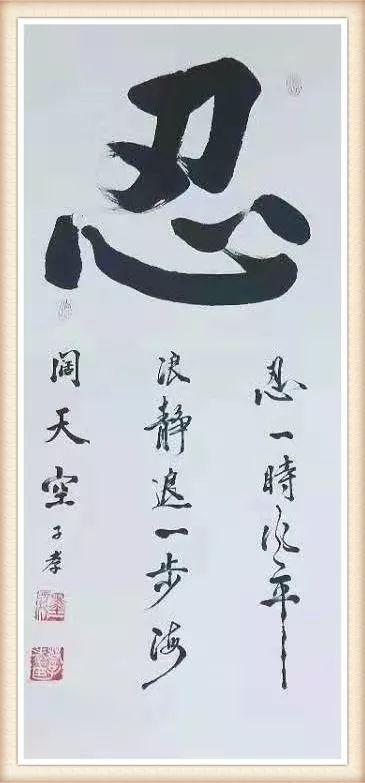 忍
忍一時风平
浪静退一步海
阔天空
子孝